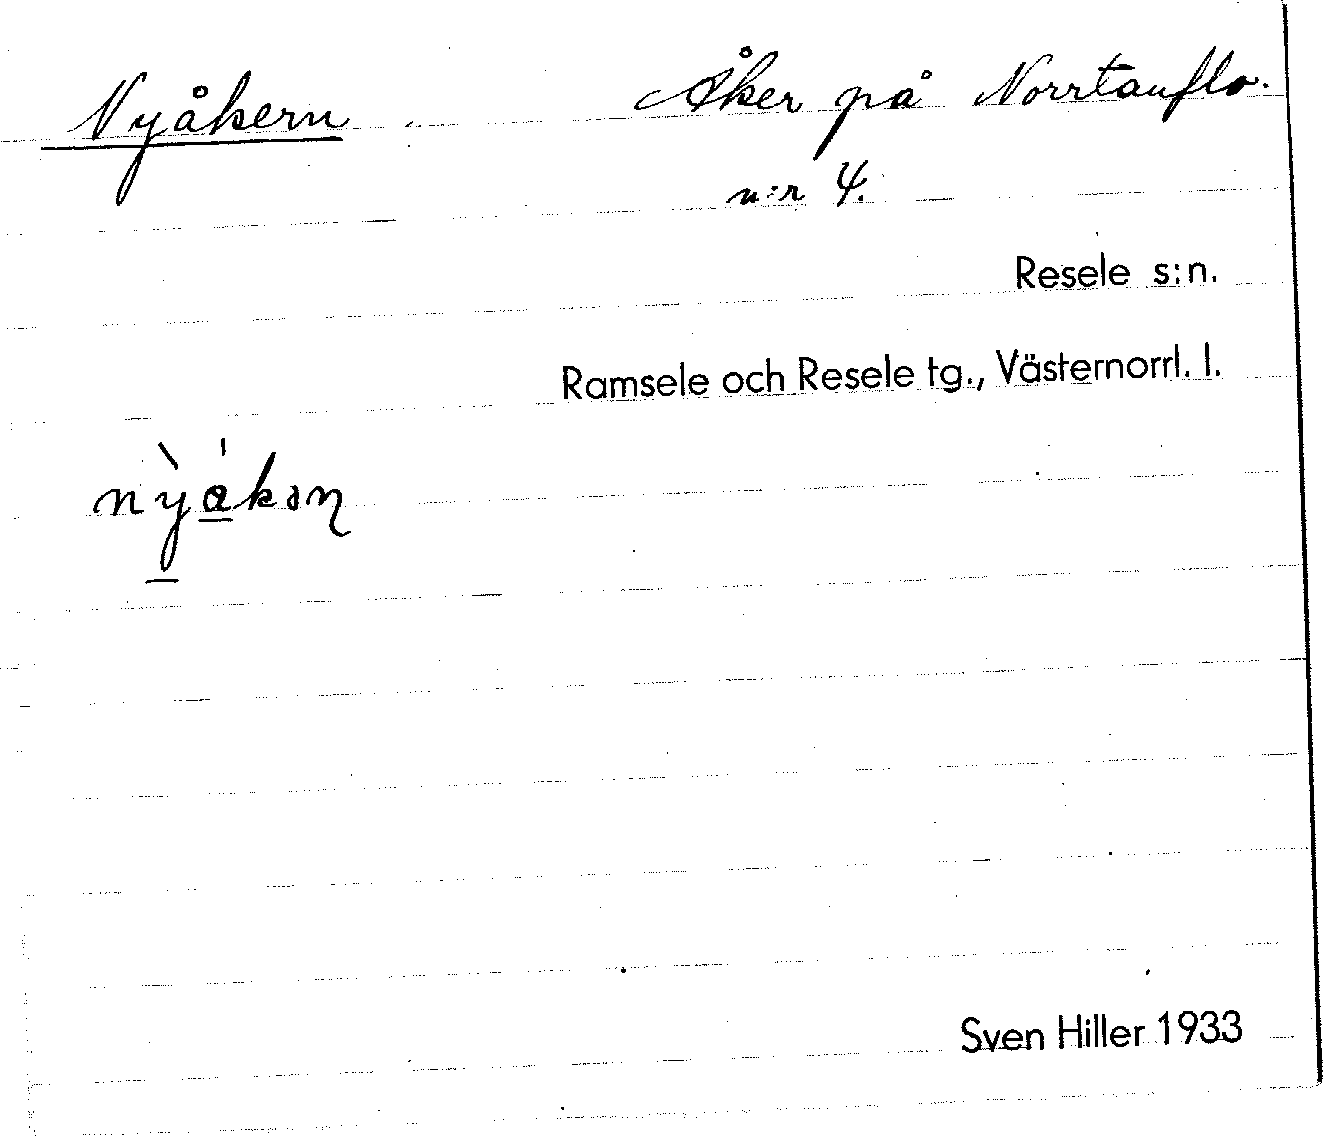 Nyåkern Åker på Norrtanflo.
n:r 4.
Resele s:n.
Ramsele och Resele tg., Västernorrl. l.
Sven Hiller 1933